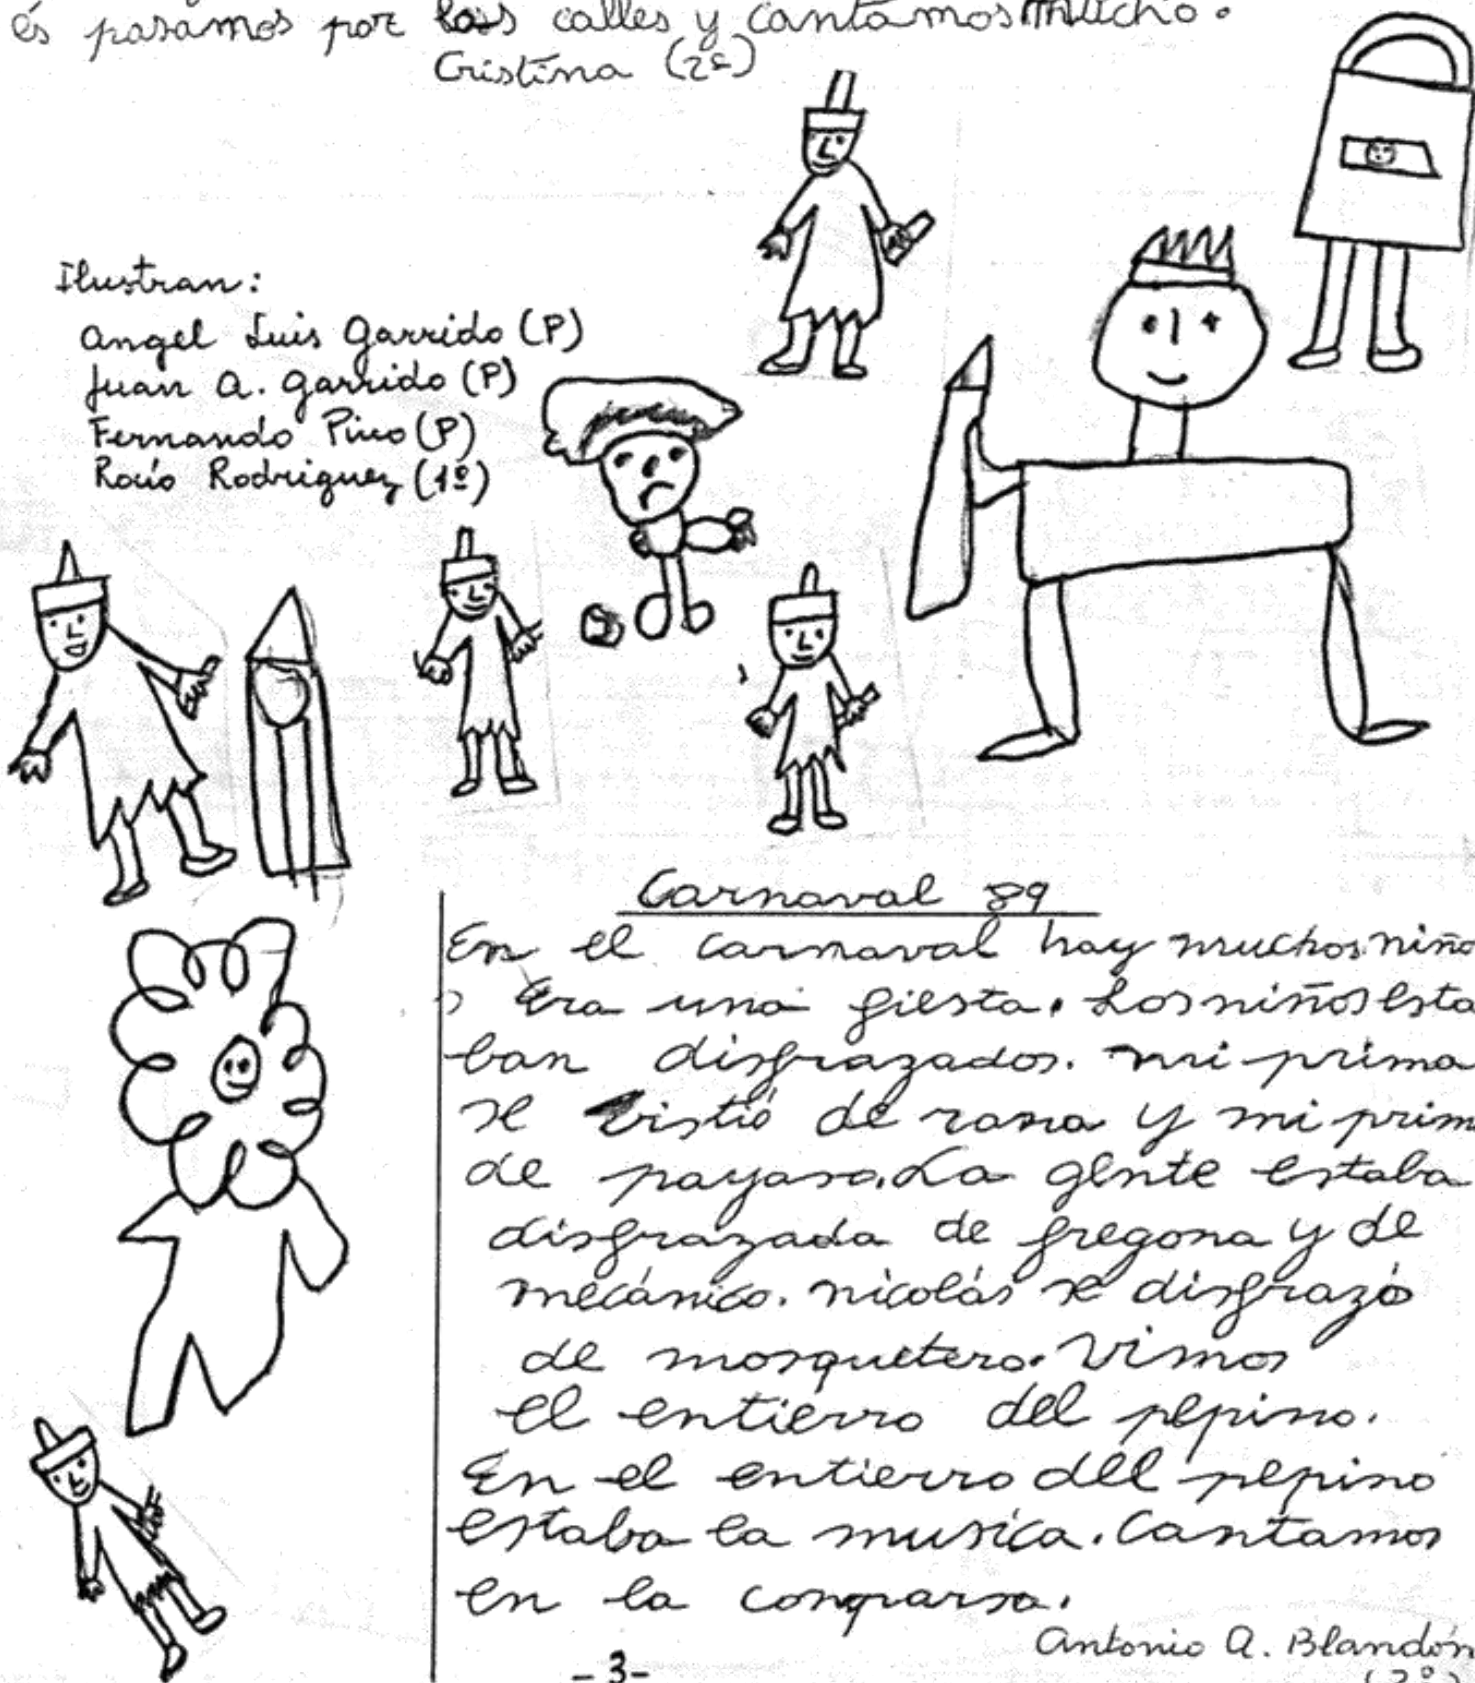 és pasamos por las calles y cantamos mucho.
Cristina (2º)
Ilustran:
Angel Luis Garrido (P)
Juan A. Garrido (P)
Fernando Pino (P)
Rocío Rodriguez (1º)
Carnaval 89
En el carnaval hay muchos niño
s Era una fiesta. Los niños esta
ban disfrazados. mi prima
se vistió de rana y mi prim
de payaso. La gente estaba
disfrazada de fregona y de
mecánico. nicolás se disfrazó
de mosquetero. Vimos
el entierro del pepino.
En el entierro del pepino
estaba la musica. Cantamos
en la comparsa.
Antonio A. Blandón
-3-